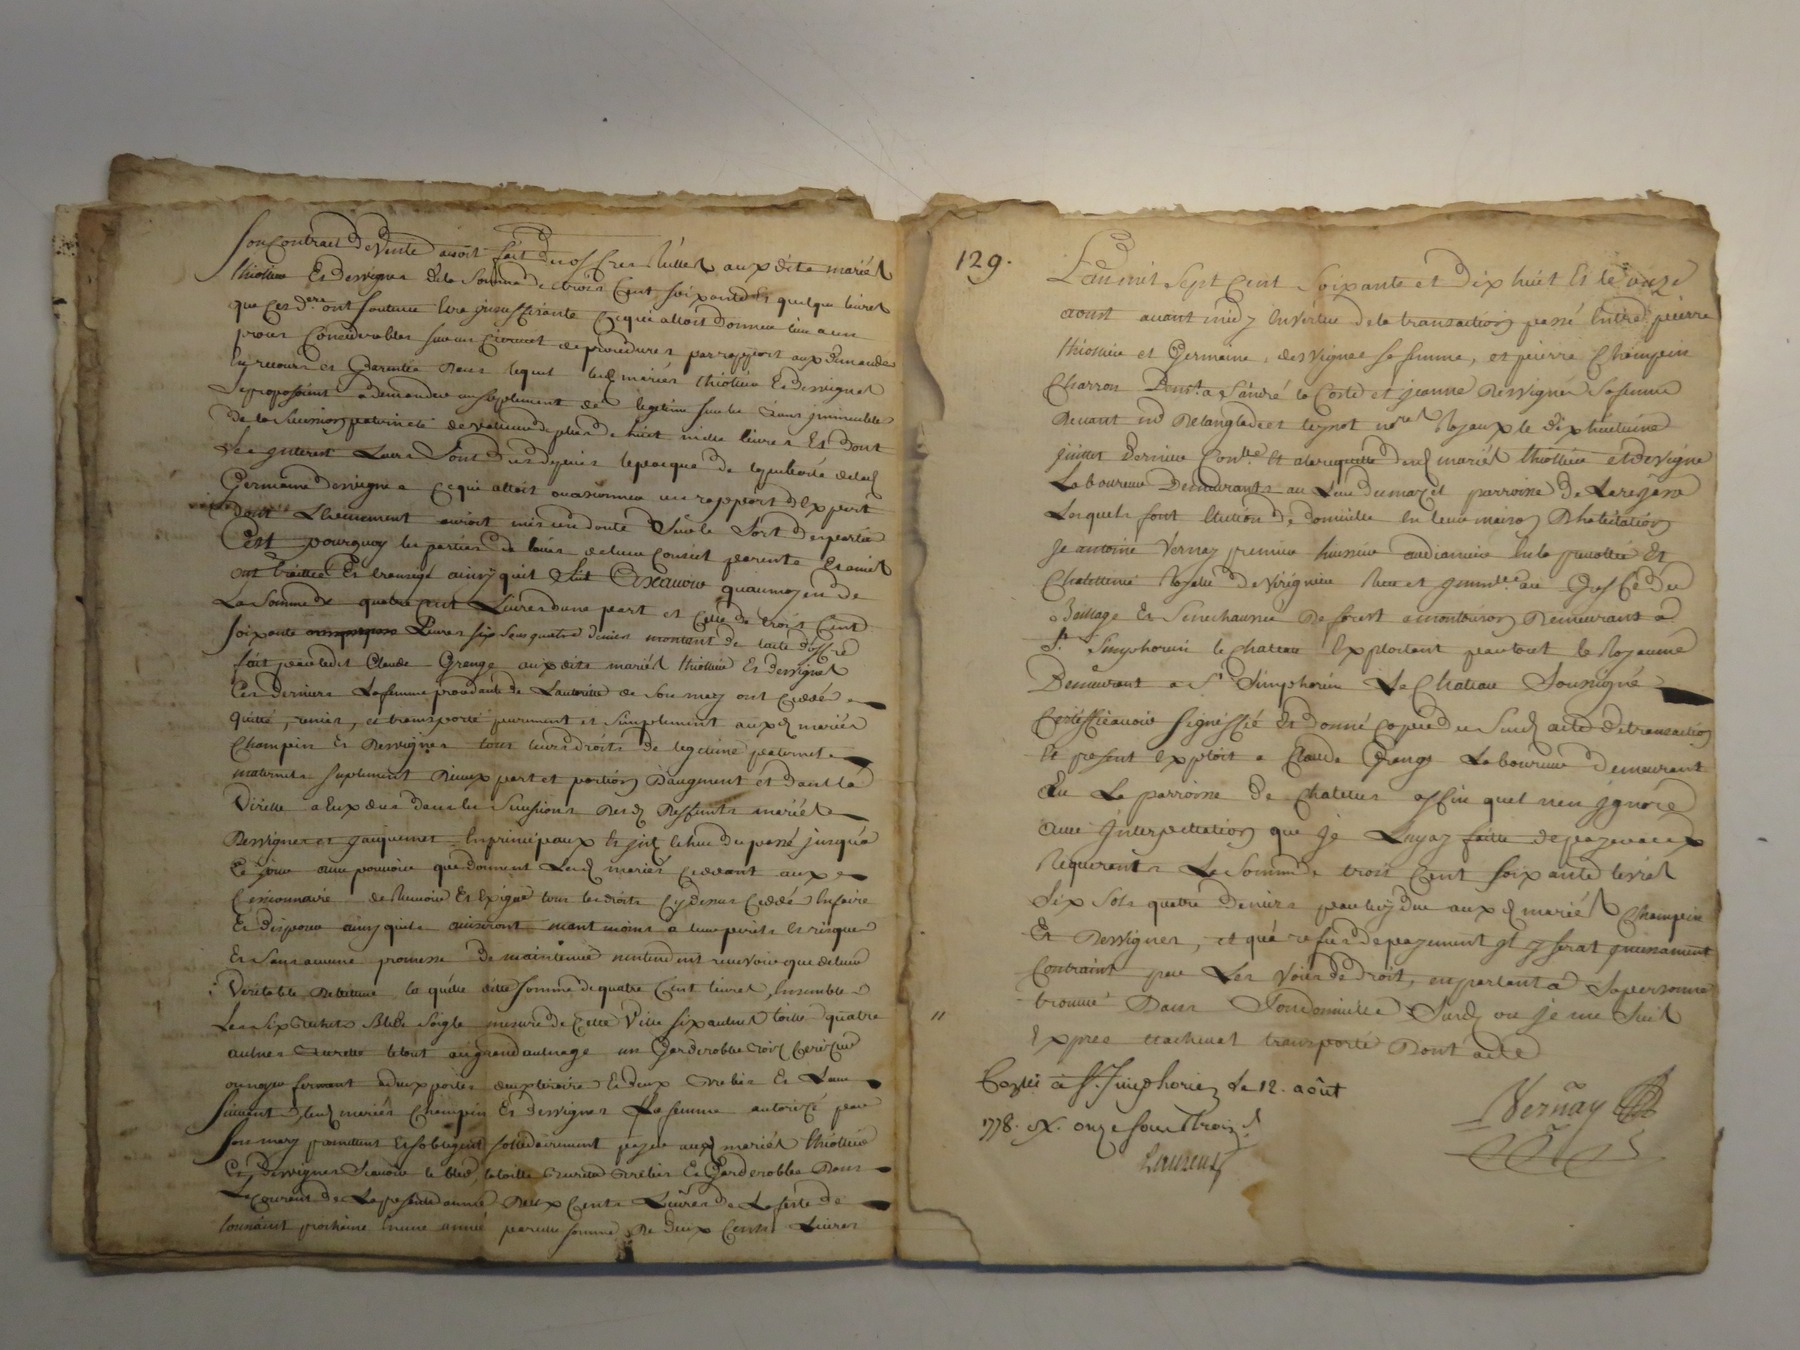 son Contrait de Vente avoit fait aux dits mariés
thiolliere Et desvignes de la Somme de trois Cent soixante Et quelque livres
que ces d.ers ont soutenu Etre insuffisante Ce qui alloit donner lieu a un
procés Considerables sur un Circuit de procedures par rapport aux demandes
En recours et Garentie dans lequel les mariés thiolliere Et desvignes
se proposoint a demander un suplement de legitime sur les biens immeubles
de la Sucession paternelle de valleur de plus de huit mille livres Et dont
les interest Leurs Sont dus depuis
Germaine desvignes Ce qui alloit ocasionner un rapport d'Expert
dont L'Evenement auroit mis un doute Sur le Sort des parties
C'est pourquoy les parties de l'avis de leur Conseil parents Et amis
ont traittés Et transigé ainsy quil Suit Sçavoir quaumoyen de
La Somme de quatre cent Livres dune part et Celle de trois Cent
soixante Livres six sous quatre deniers montant de
fait par ledit Claude Grange aux dits mariés thiolliere Et desvignes
Ces derniers La femme procedante de L'autorité de Son mary ont Ceddé
quitté, remis, et transporté purement et Simplement aux d mariés
Champein Et Desvignes tous leurs droits de legitime paternel
maternels suplement dIceux part et portion d'augment et dans la
Virille a Eux dus dans les Sucsions des d deffunts mariés
Desvignes et Jaquemet En principeaux Et jnt Echus du passé jusqua
Ce jour avec pouvoir que donnent Les d mariés Ceddant aux
Cessionnaire de Recevoir Et Exiger tous les droits Cy dessus Ceddé En faire
Et disposer ainsy quils aviseront neant moins a leurs perils Et risque
Et Sans aucune promesse de maintenue nentendent recevoir que de leur
Veritable Debiteur la quelle ditte somme de quatre Cent livres, Ensemble
Les Six Bled Seigle mesure de Cette Ville six aulnes toille quatre
aulnes le tout au grand aulnage un Garderobbe bois Cerizier
ou noyer fermant a deux portes deux tiroirs Et deux brebis Et Leur
suivant les d mariés Champein Et desvignes La femme autorizé par
Son mary promettent Et s'obligent sollidairement payer aux d mariés thiolliere
Et desvignes Scavoir le bled, la toille brebis Et Garderobbe Dans
Le Courant de La presente année Deux Cents Livres de La fête de
toussaint prochaine En une année pareille somme De deux Cents Livres
129.
L'an mil Sept Cent Soixante et dix huit Et le onze
aoust avant midy En vertue de la transaction passé Entre pierre
thiolliere et Germaine desvignes sa femme, et pierre Champein
Charron Demt. a St André la Coste et jeanne Desvignes Sa femme
Devant me Delanglade et teynot nores Royaux le dix huitieme
juillet Dernier Conlé Et a la requette des d mariés thiolliere et desvigne
Laboureur Demeurants au Lieu du mazet parroisse de Laregasse
Lesquels font Election de domicille En leur maison D'habitation
Je antoine Vernay premier huissier audiancier En la prevotté Et
Chatellenie Royalle de Virignieu Reçu et jmmlé au Greffe du
Baillage Et Senechaussée De forest a montbrison Demeurant a
St. Simphorien le chateau Exploitant partout le Royaume
Demeurant a St Simphorien Le Chateau Soussigné
Certiffie avoir signiffié Et donné Copie du Susd acte de transaction
Et present Exploit a Claude Grange Laboureur demeurant
En La parroisse de Chatelus affin quil n'en jgnore
avec jnterpellation que je Luy ay faitte de payer aux
Requerants La Somme de trois Cent soixante livres
Six Sols quatre deniers par luy due aux d mariés Champein
Et Desvignes, et qu'a refus de payement il y serat jncessament
Contraint par Les Voies de droit, en parlant a Sa personne
trouvé Dans Son domicille Susd ou je me Suis
Expres a cheval transporté Dont acte
Collé a St. Simphorien Le 12. août
1778. Rx. onze sous trois d.
Laurent
Vernay